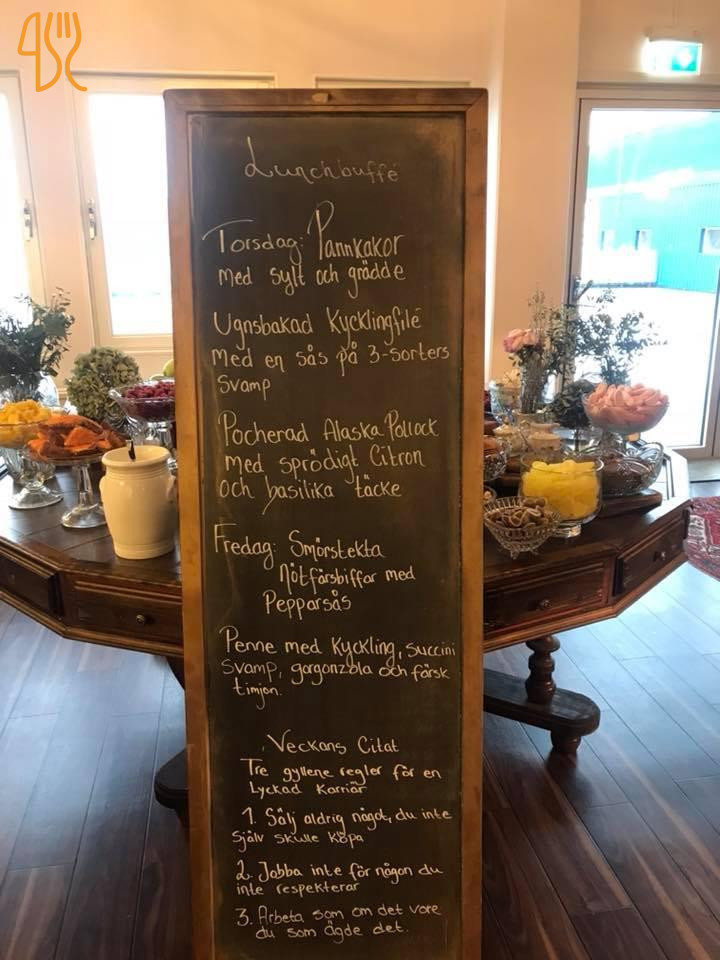 Lunchbuffé
Torsdag: Pannkakor
med sylt och grädde
Ugnsbakad Kycklingfilé
med en sås på 3-sorters
svamp
Pocherad Alaska Pollock
med sprödigt Citron
och basilika täcke
Fredag: Smörstekta
Nötfärsbiffar med
Pepparsås
Penne med Kyckling, succini
svamp, gorgonzola och färsk
timjan.
Veckans Citat
Tre gyllene regler för en
Lyckad Karriär
1. Sälj aldrig något, du inte
själv skulle köpa
2. Jobba inte för någon du
inte respekterar
3. Arbeta som om det vore
du som ägde det.